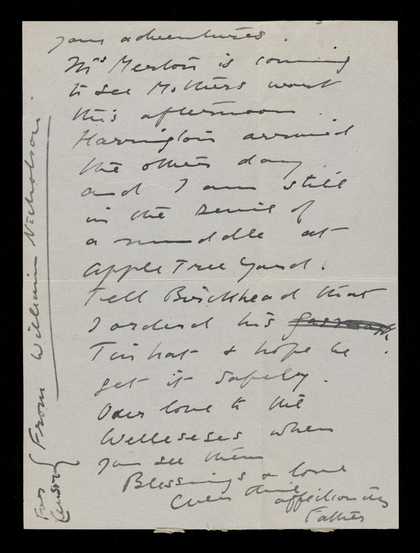 your adventures.
Mrs Merton is coming
to see Mothers work
this afternoon
Harrington arrived
the other day
and I am still
in the devil of
a muddle at
Apple Tree Yard.
Tell Birckhead that
I orderd his
Tin hat & hope he
get it safely.
Our love to the
Welleseses when
you see them
Blessings & love
affectionate
Father
For Censor
From William Nicholson